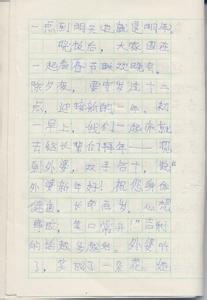 一点到明天也就是明年,
晚饭后,大家围在
一起看春节联欢晚会,
除夕夜,要守岁过十二
点,迎接新的一年。初
一早上,我们一起床就
去给长辈们拜年——
到外婆,双手合十,说"
外婆新年好!祝您身体
健康,长命百岁,心想
事成,笑口常开!"吉利
的话越多越好,外婆听
了,笑成了一朵花,给